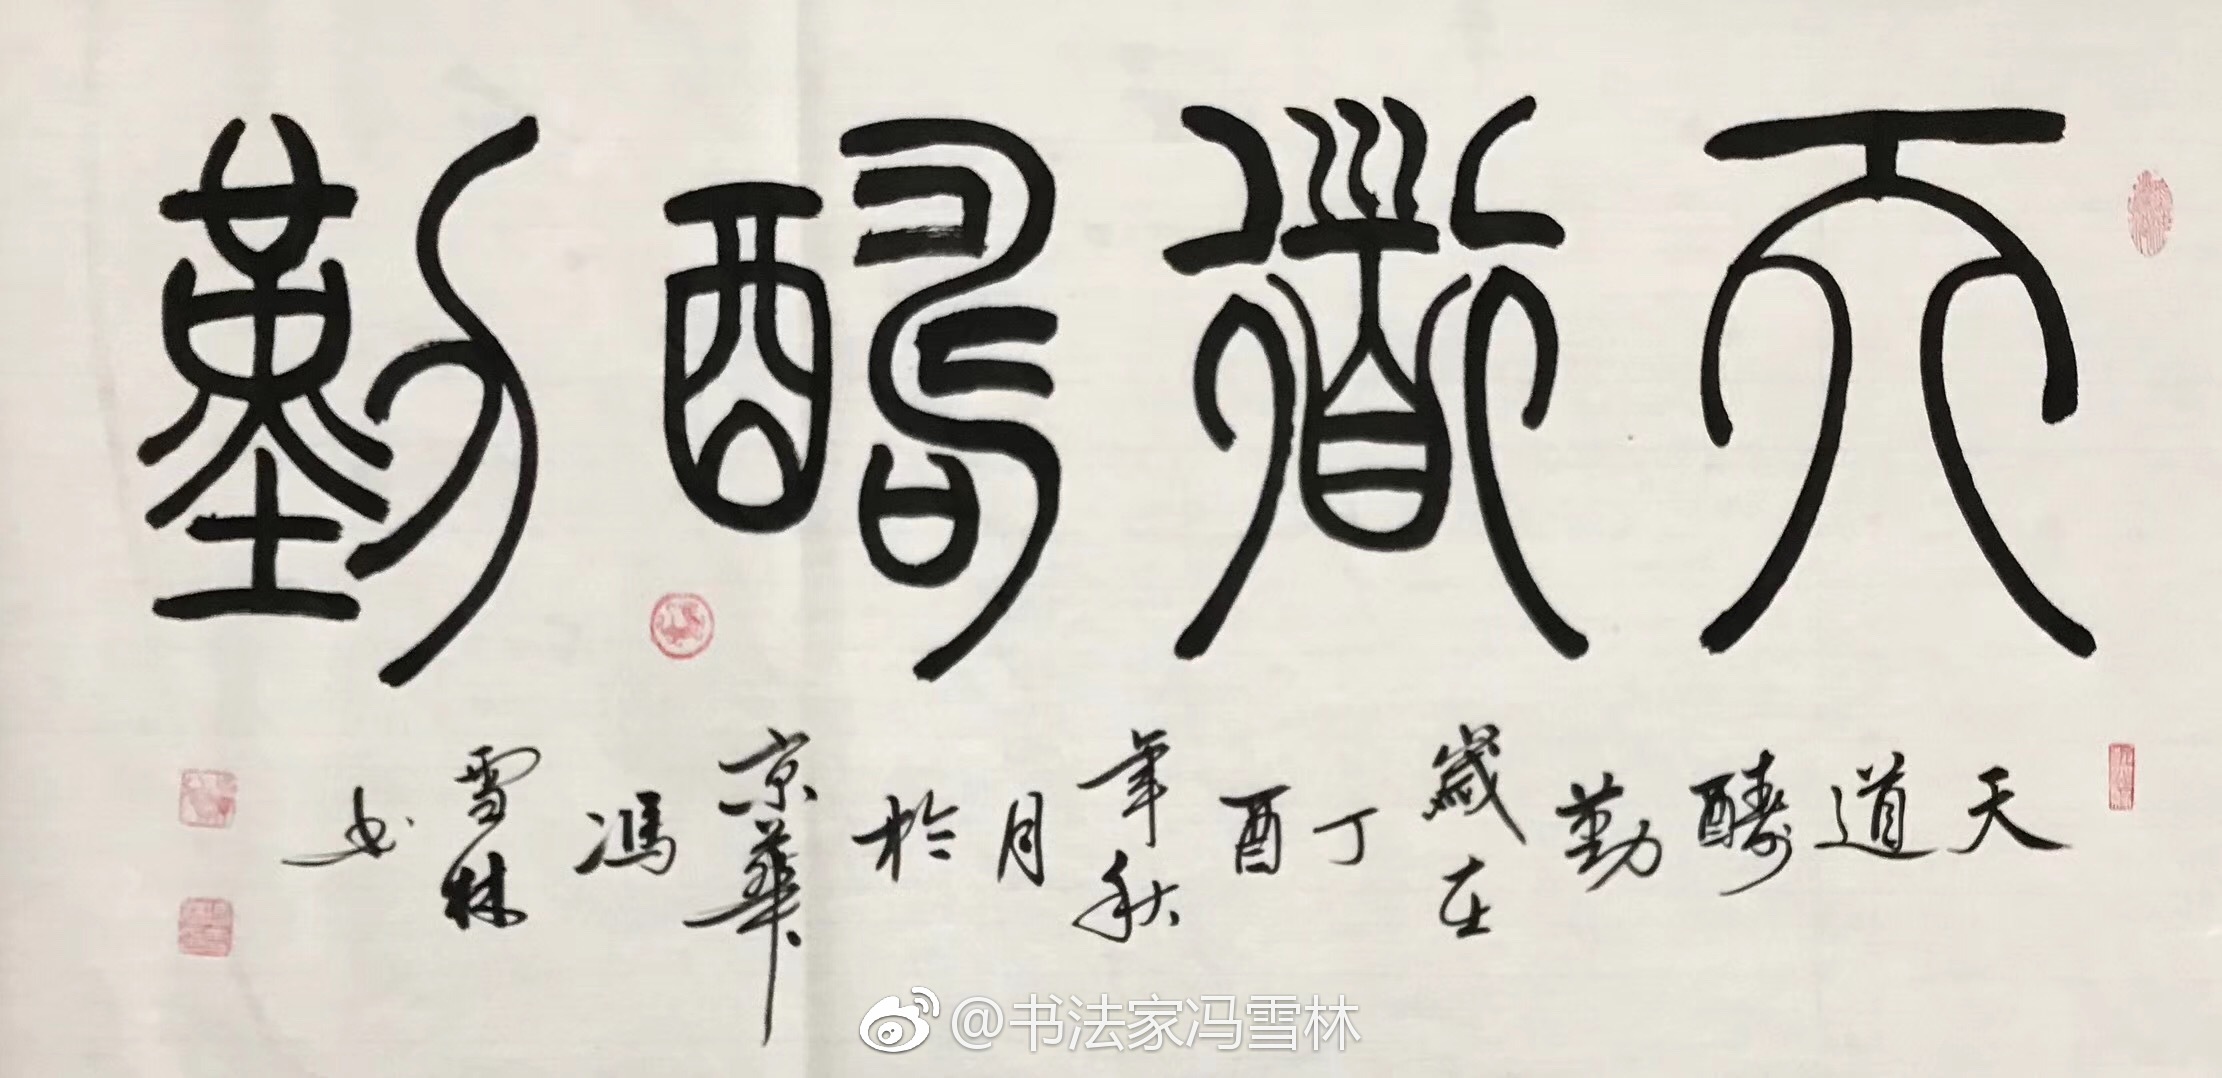 天道酬勤
天道酬勤歲在丁酉年秋月於京華馮雪林书
@书法家冯雪林